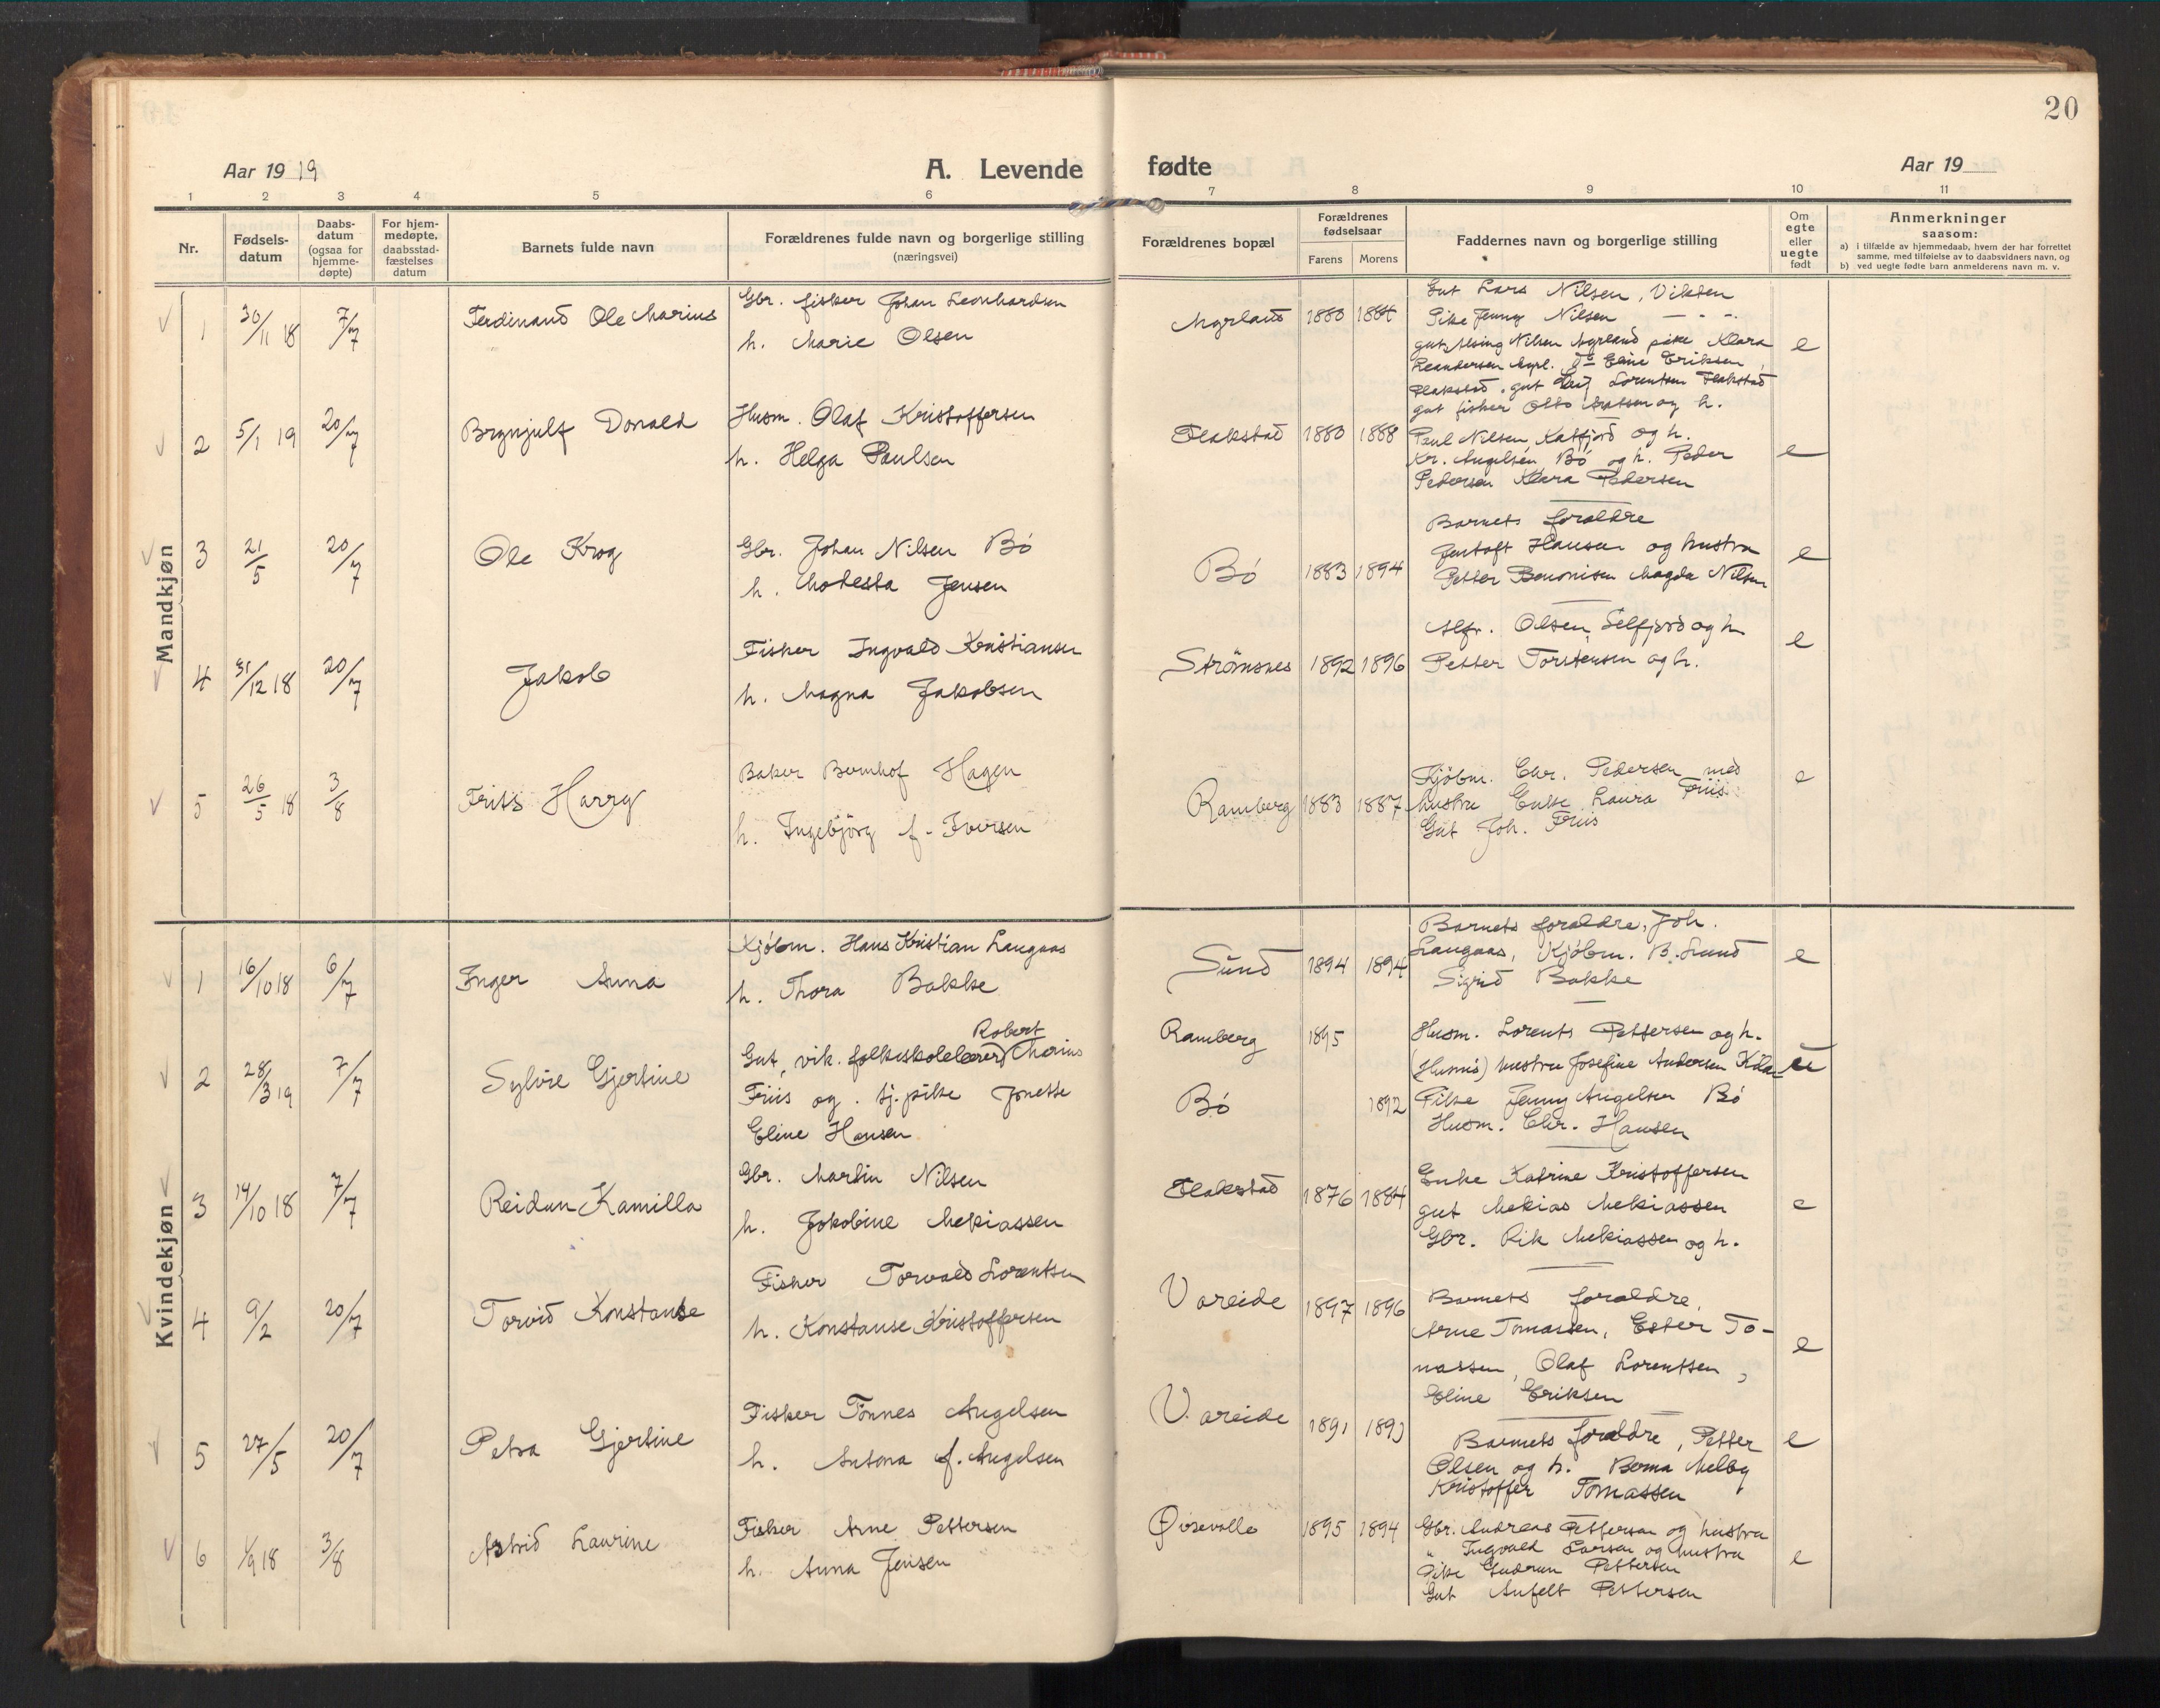 20
Aar 19 19
A. Levende
fødte
Aar 19
1 2 3 4 5 6 7 8 9 10 11
Nr.
Fødsels-
datum
Daabs-
datum
(ogsaa for
hjemme-
døpte)
For hjem-
medøpte,
daabsstad-
fæstelses
datum
Barnets fulde navn
Forældrenes fulde navn og borgerlige stilling
(næringsvei)
Forældrenes bopæl
Forældrenes
fødselsaar
Farens Morens
Faddernes navn og borgerlige stilling
Om
egte
eller
uegte
født
Anmerkninger
saasom:
a) i tilfælde av hjemmedaab, hvem der har forrettet
samme, med tilføielse av to daabsvidners navn, og
b) ved uegte fødte barn anmelderens navn m. v.
Mandkjøn
1 30/11 18 7/7 Ferdinand Ole Marius
Gbr. fisker Johan Leonhardsen
h. Marie Olsen
Myrland 1880 1884
Gut Lars Nilsen, Vikten
Pike Jenny Nilsen — " —
gut Nilsen Myrland pike Klara
Leandersen Myrl. do Eline Eriksen
Flakstad. gut Lorentsen Flakstad
e
2 5/1 19 20/7 Brynjulf Donald
Husm. Olaf Kristoffersen
h. Helga Paulsen
Flakstad 1880 1888
gut fisker Otto og h.
Paul Nilsen, Katfjord og h.
Kr. Angelsen Bö og h. Peder
Pedersen Klara Pedersen
e
3 21/5 20/7 Ole Krog
Gbr. Johan Nilsen Bö
h. Modesta Jensen
Bö 1883 1894
Barnets foraldre
Jentoft Hansen og hustru
Petter Benonisen Magda Nilsen
e
4 31/12 18 20/7 Jakob
Fisker Ingvald Kristiansen
h. Magna Jakobsen
Strömsnes 1892 1896
Alfr. Olsen, Selfjord og h
Petter Torstensen og h.
e
5 26/5 18 3/8 Frits Harry
Baker Bernhof Hagen
h. Ingebjörg f. Iversen
Ramberg 1883 1887
Kjöbm. Chr. Pedersen med
hustru Enke Laura Friis
Gut Joh. Friis
e
Kvindekjøn
1 16/10 18 6/7 Inger Anna
Kjöbm. Hans Kristian Langaas
h. Thora Bakke
Sund 1894 1894
Barnets foraldre, Joh.
Langaas, Kjöbm. B. Lund
Sigrid Bakke
e
2 28/3 19 7/7 Sylvie Gjertine
Robert
Gut, vik. folkeskolelærer Marius
Friis og tj. pike Jonette
Eline Hansen
Ramberg 1895
Bö 1892
Husm. Lorents Pettersen og h.
(Husm's) hustru Josefine Andersen
Pike Jenny Angelsen Bö
Husm. Chr. Hansen
3 14/10 18 7/7 Reidun Kamilla
Gbr. Martin Nilsen
h. Jakobine Mekiassen
Flakstad 1876 1884
Enke Katrine Kristoffersen
gut Mekias Mekiassen
Gbr. Rik Mekiassen og h.
e
4 9/2 20/7 Torvid Konstanse
Fisker Torvald Lorentsen
h. Konstanse Kristoffersen
Vareide 1897 1896
Barnets foraldre,
Arne Tomassen, Ester To-
massen, Olaf Lorentsen,
Eline Eriksen
e
5 27/5 20/7 Petra Gjertine
Fisker Tönnes Angelsen
h. Antona f. Angelsen
Vareide 1891
Barnets foraldre, Petter
Olsen og h. Berna Melby
Kristoffer Tomassen
e
6 1/9 18 3/8 Astrid Laurine
Fisker Arne Pettersen
h. Anna Jensen
1895 1894
Gbr. Andreas Pettersen og hustru
" Ingvald Larsen og hustru
Pike Gudrun Pettersen
Gut Anfelt Pettersen
e